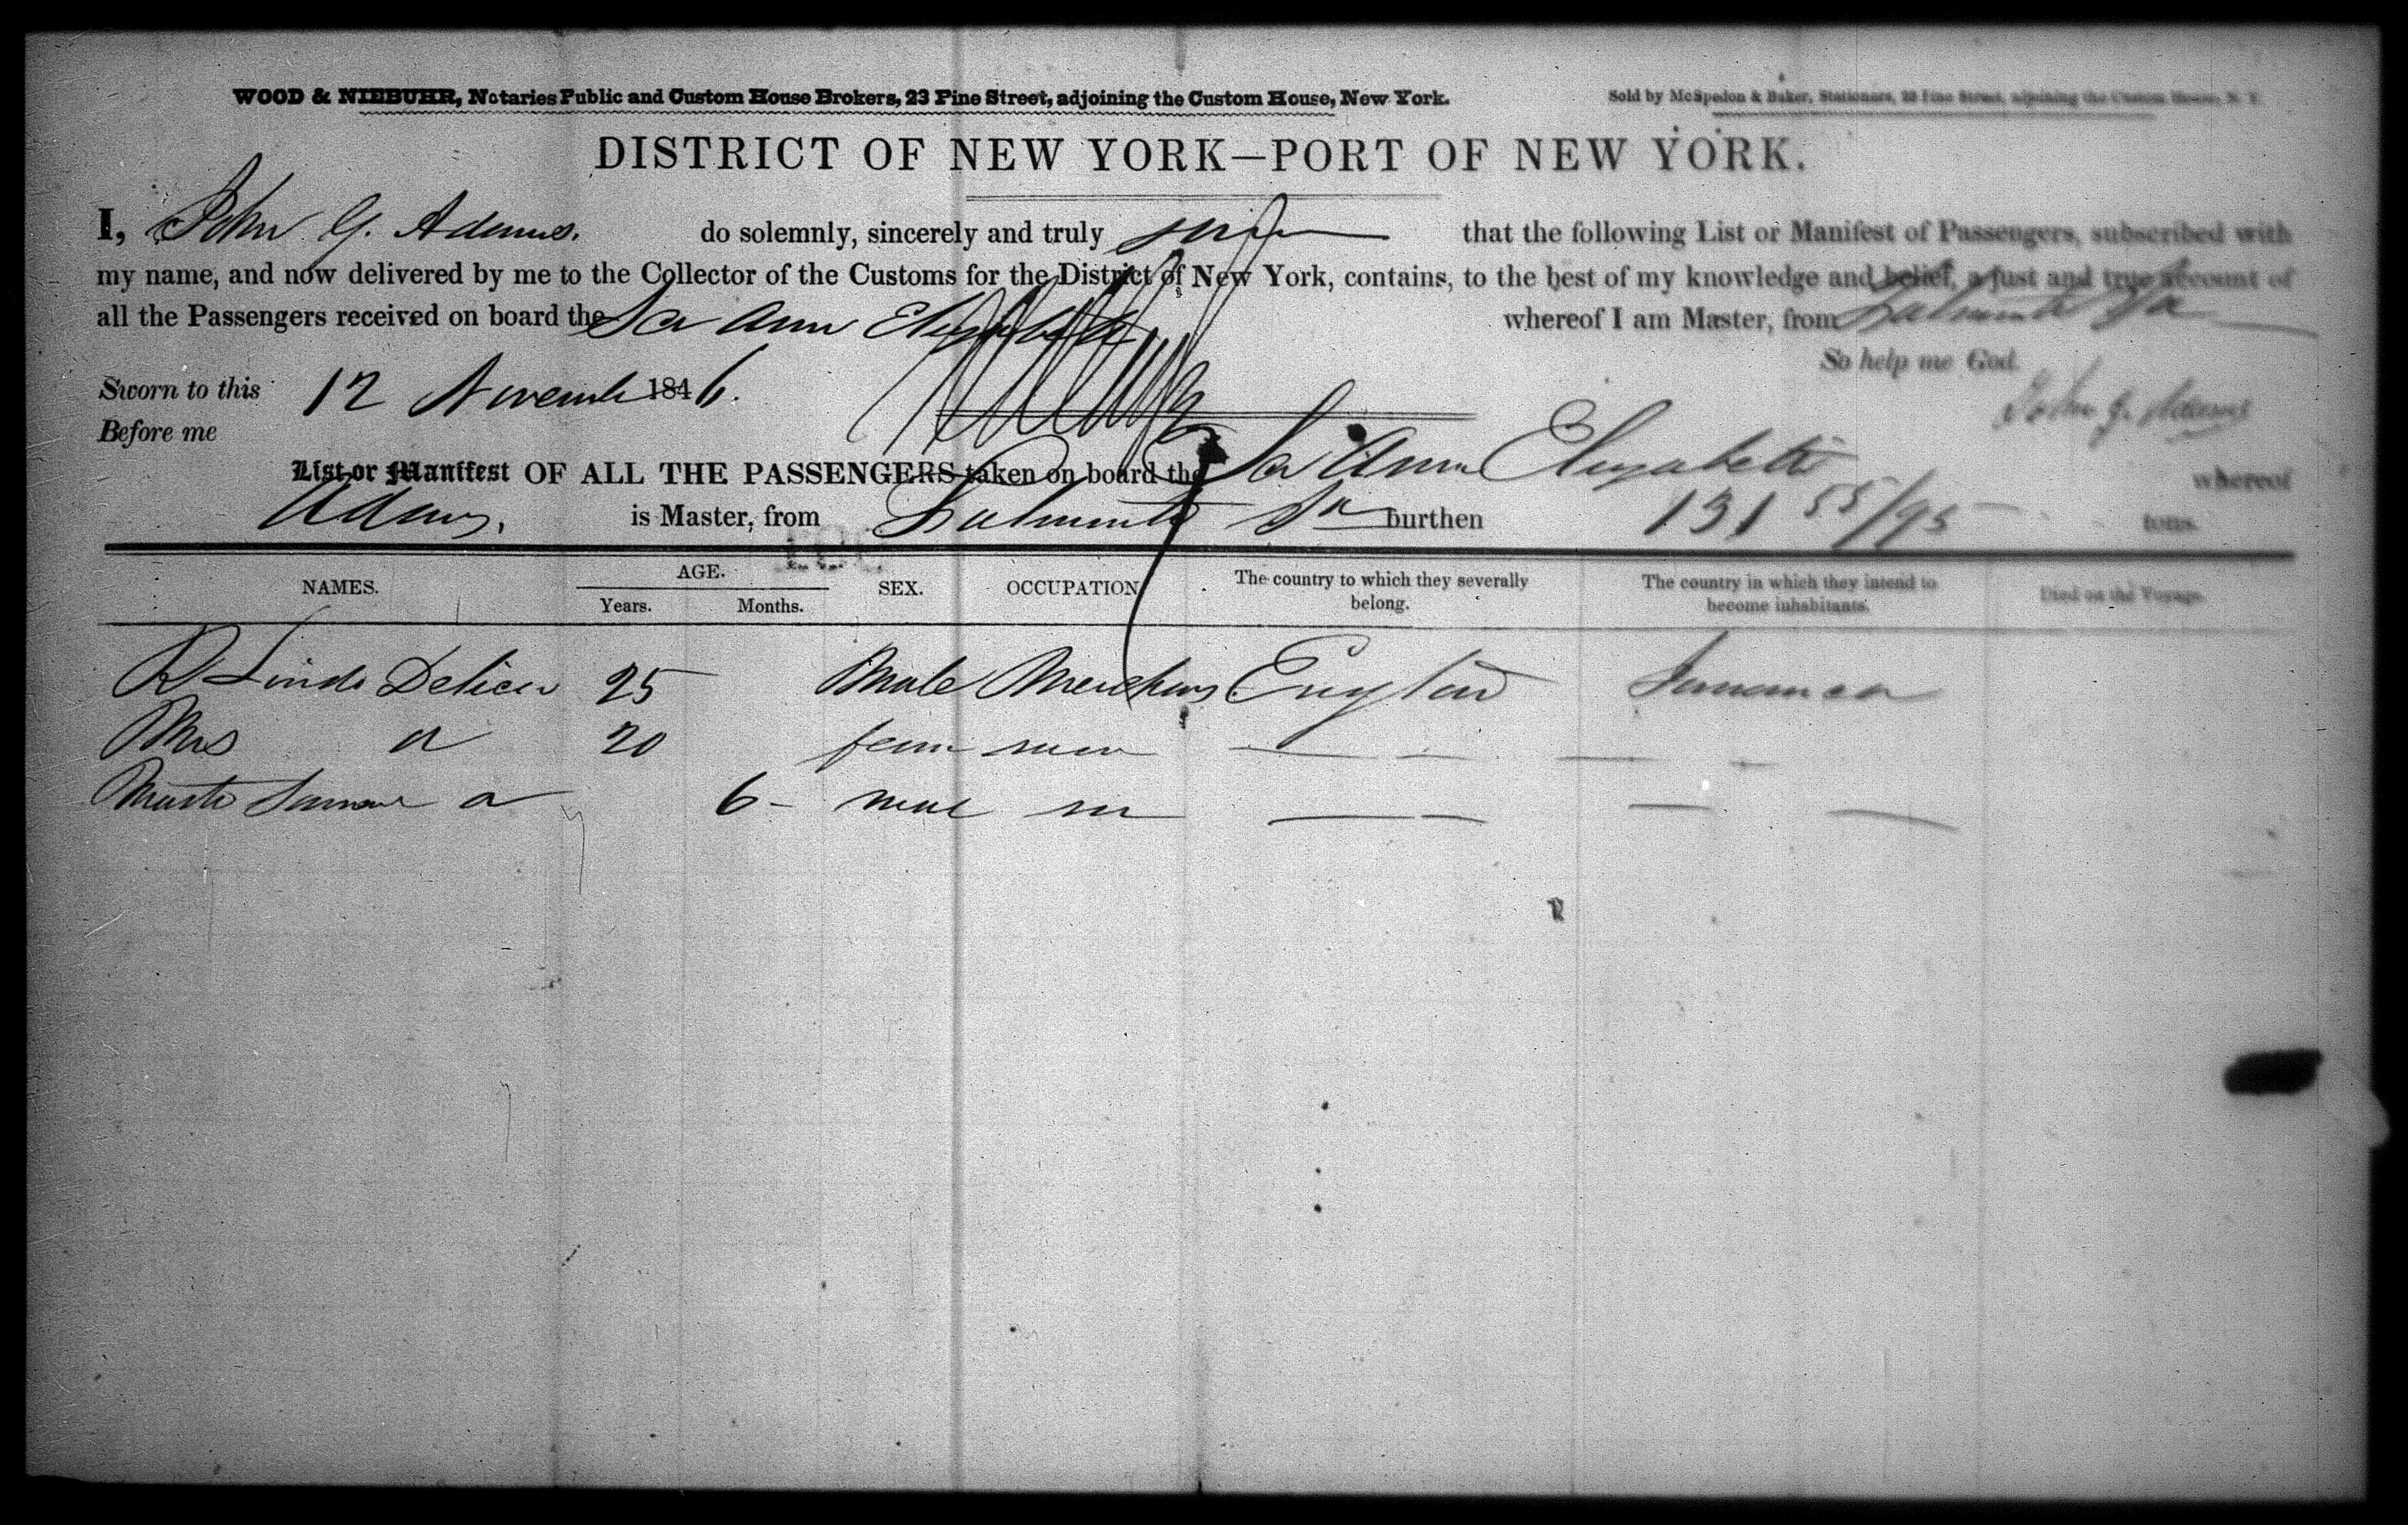 WOOD & NIEBUHR, Notaries Public and Custom House Brokers, 23 Pine Street, adjoining the Custom House, New York.
Sold by McSpedon & Baker, Stationers, 25 Pine Street, adjoining the Custom House, N. Y.
DISTRICT OF NEW YORK—PORT OF NEW YORK.
I, John G. Adams. do solemnly, sincerely and truly swear that the following List or Manifest of Passengers, subscribed with
my name, and now delivered by me to the Collector of the Customs for the District of New York, contains, to the best of my knowledge and belief, a just and true account of
all the Passengers received on board the Sch Ann Elizabeth whereof I am Master, from Falmouth Ja
So help me God.
Sworn to this 12 November 1846.
John G. Adams
Before me
List or Manifest OF ALL THE PASSENGERS taken on board the Sch Ann Elizabeth whereof
Adams. is Master, from Falmouth Ja burthen 131 55/95 tons.
NAMES. AGE. SEX. OCCUPATION The country to which they severally belong. The country in which they intend to become inhabitants. Died on the Voyage.
Years. Months.
R Lindo 25 Male Merchant England Jamaica
Mrs 20 fem
6 male